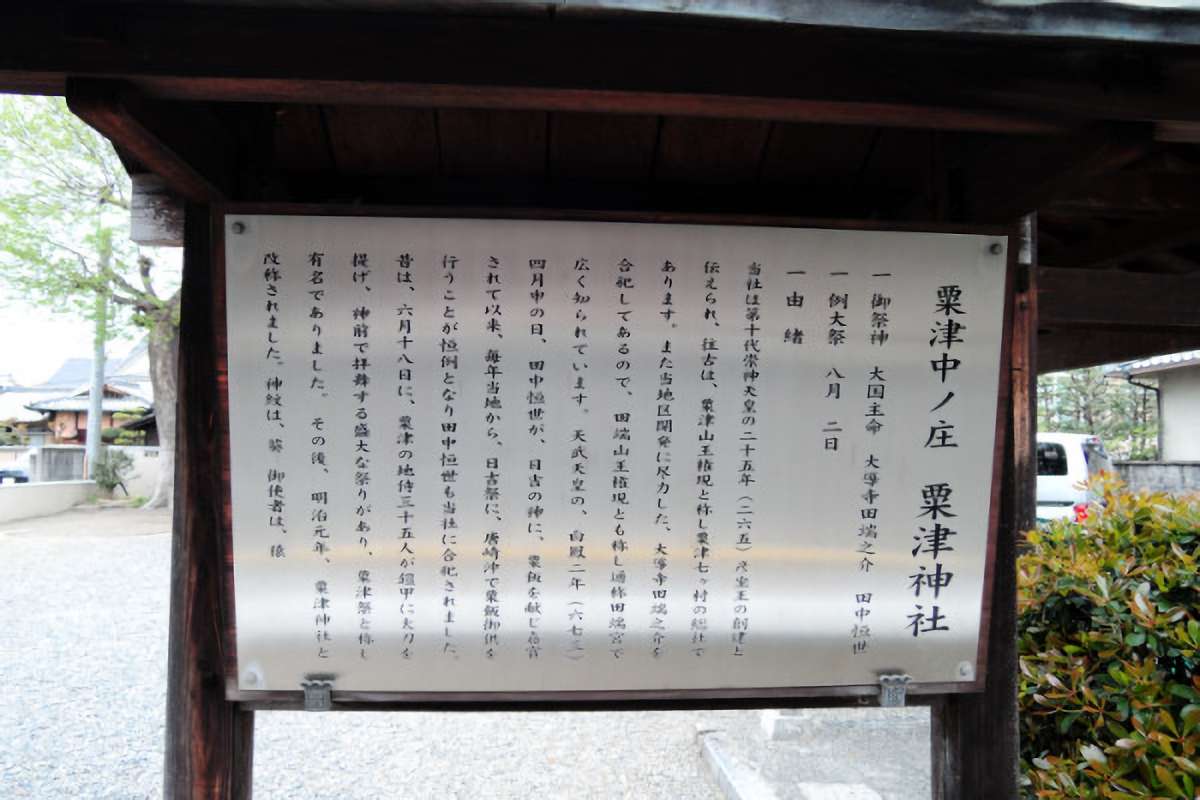 粟津中ノ庄 粟津神社
一 御祭神 大国主命 大導寺田端之介 田中恒世
一 例大祭 八月 二日
一 由緒
当社は第十代崇神天皇の二十五年（二六五） の創建と
伝えられ、往古は、粟津山王権現と称し粟津七ヶ村の総社で
あります。また当地区開発に尽力した、大導寺田端之介を
合祀してあるので、田端山王権現とも称し通称田端宮で
広く知られています。天武天皇の、白鳳二年（六七三）
四月申の日、田中恒世が、日吉の神に、粟飯を献じ
されて以来、毎年当地から、日吉祭に、唐崎沖で粟飯御供を
行うことが恒例となり田中恒世も当社に合祀されました。
昔は、六月十八日に、粟津の地侍三十五人が鎧甲に大刀を
提げ、神前で拝舞する盛大な祭りがあり、粟津祭と称し
有名でありました。その後、明治元年、粟津神社と
改称されました。神紋は、葵 御使者は、猿